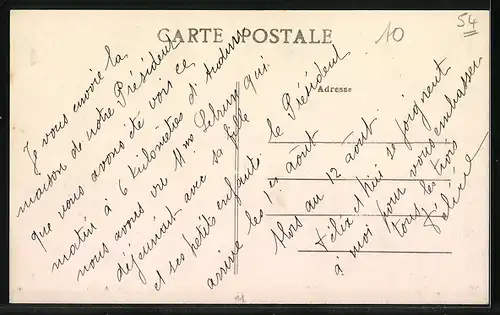 CARTE POSTALE
10
54
Adresse
Je vous envoie la
maison de notre Président
que vous avons été voir ce
matin à 6 kilomètres d'Audun
nous avons vu Mme Lebrun qui
déjeunait avec sa fille
et ses petits enfants. Le Président
arrive les 1ers août
Alors au 12 août.
Félix et Mimi se joignent
à moi pour vous embrasser
tous les trois
Félicie